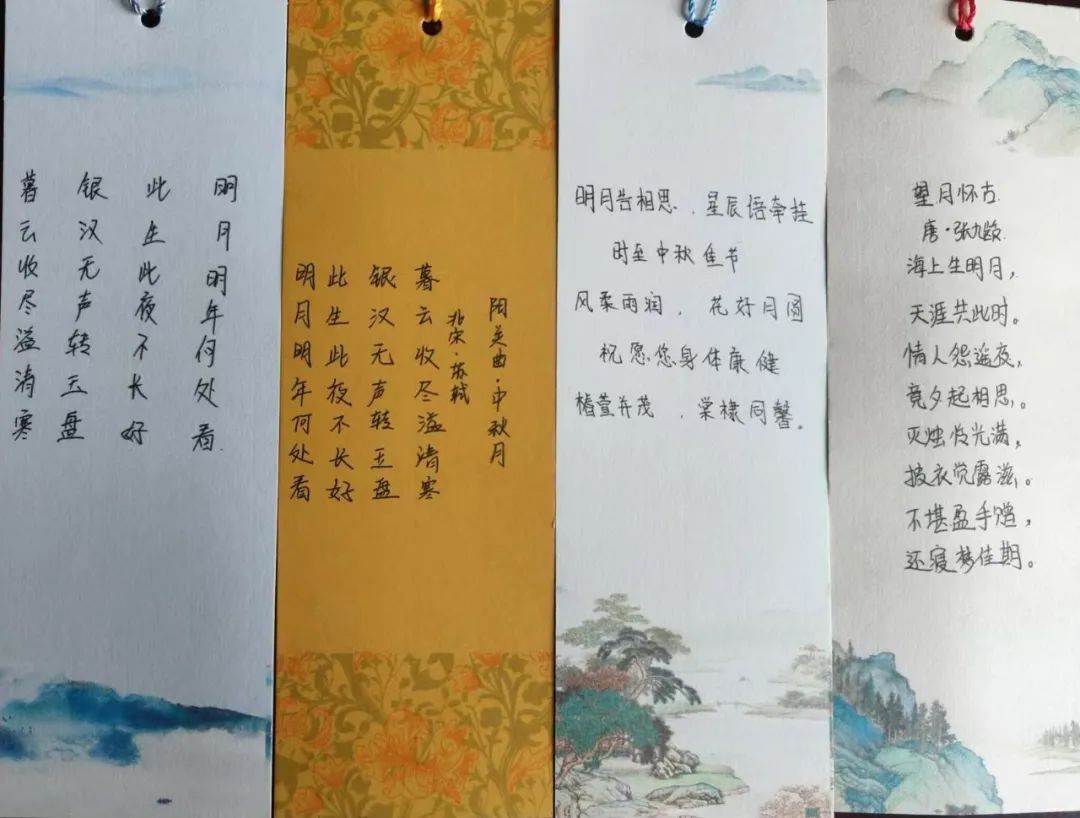 暮云收尽溢清寒
银汉无声转玉盘
此生此夜不长好
明月明年何处看
阳关曲·中秋月
北宋·苏轼
暮云收尽溢清寒
银汉无声转玉盘
此生此夜不长好
明月明年何处看
明月告相思，星辰语牵挂
时至中秋佳节
风柔雨润，花好月圆
祝愿您身体康健
椿萱并茂，棠棣同馨。
望月怀古
唐·张九龄
海上生明月，
天涯共此时。
情人怨遥夜，
竟夕起相思。
灭烛怜光满，
披衣觉露滋。
不堪盈手赠，
还寝梦佳期。